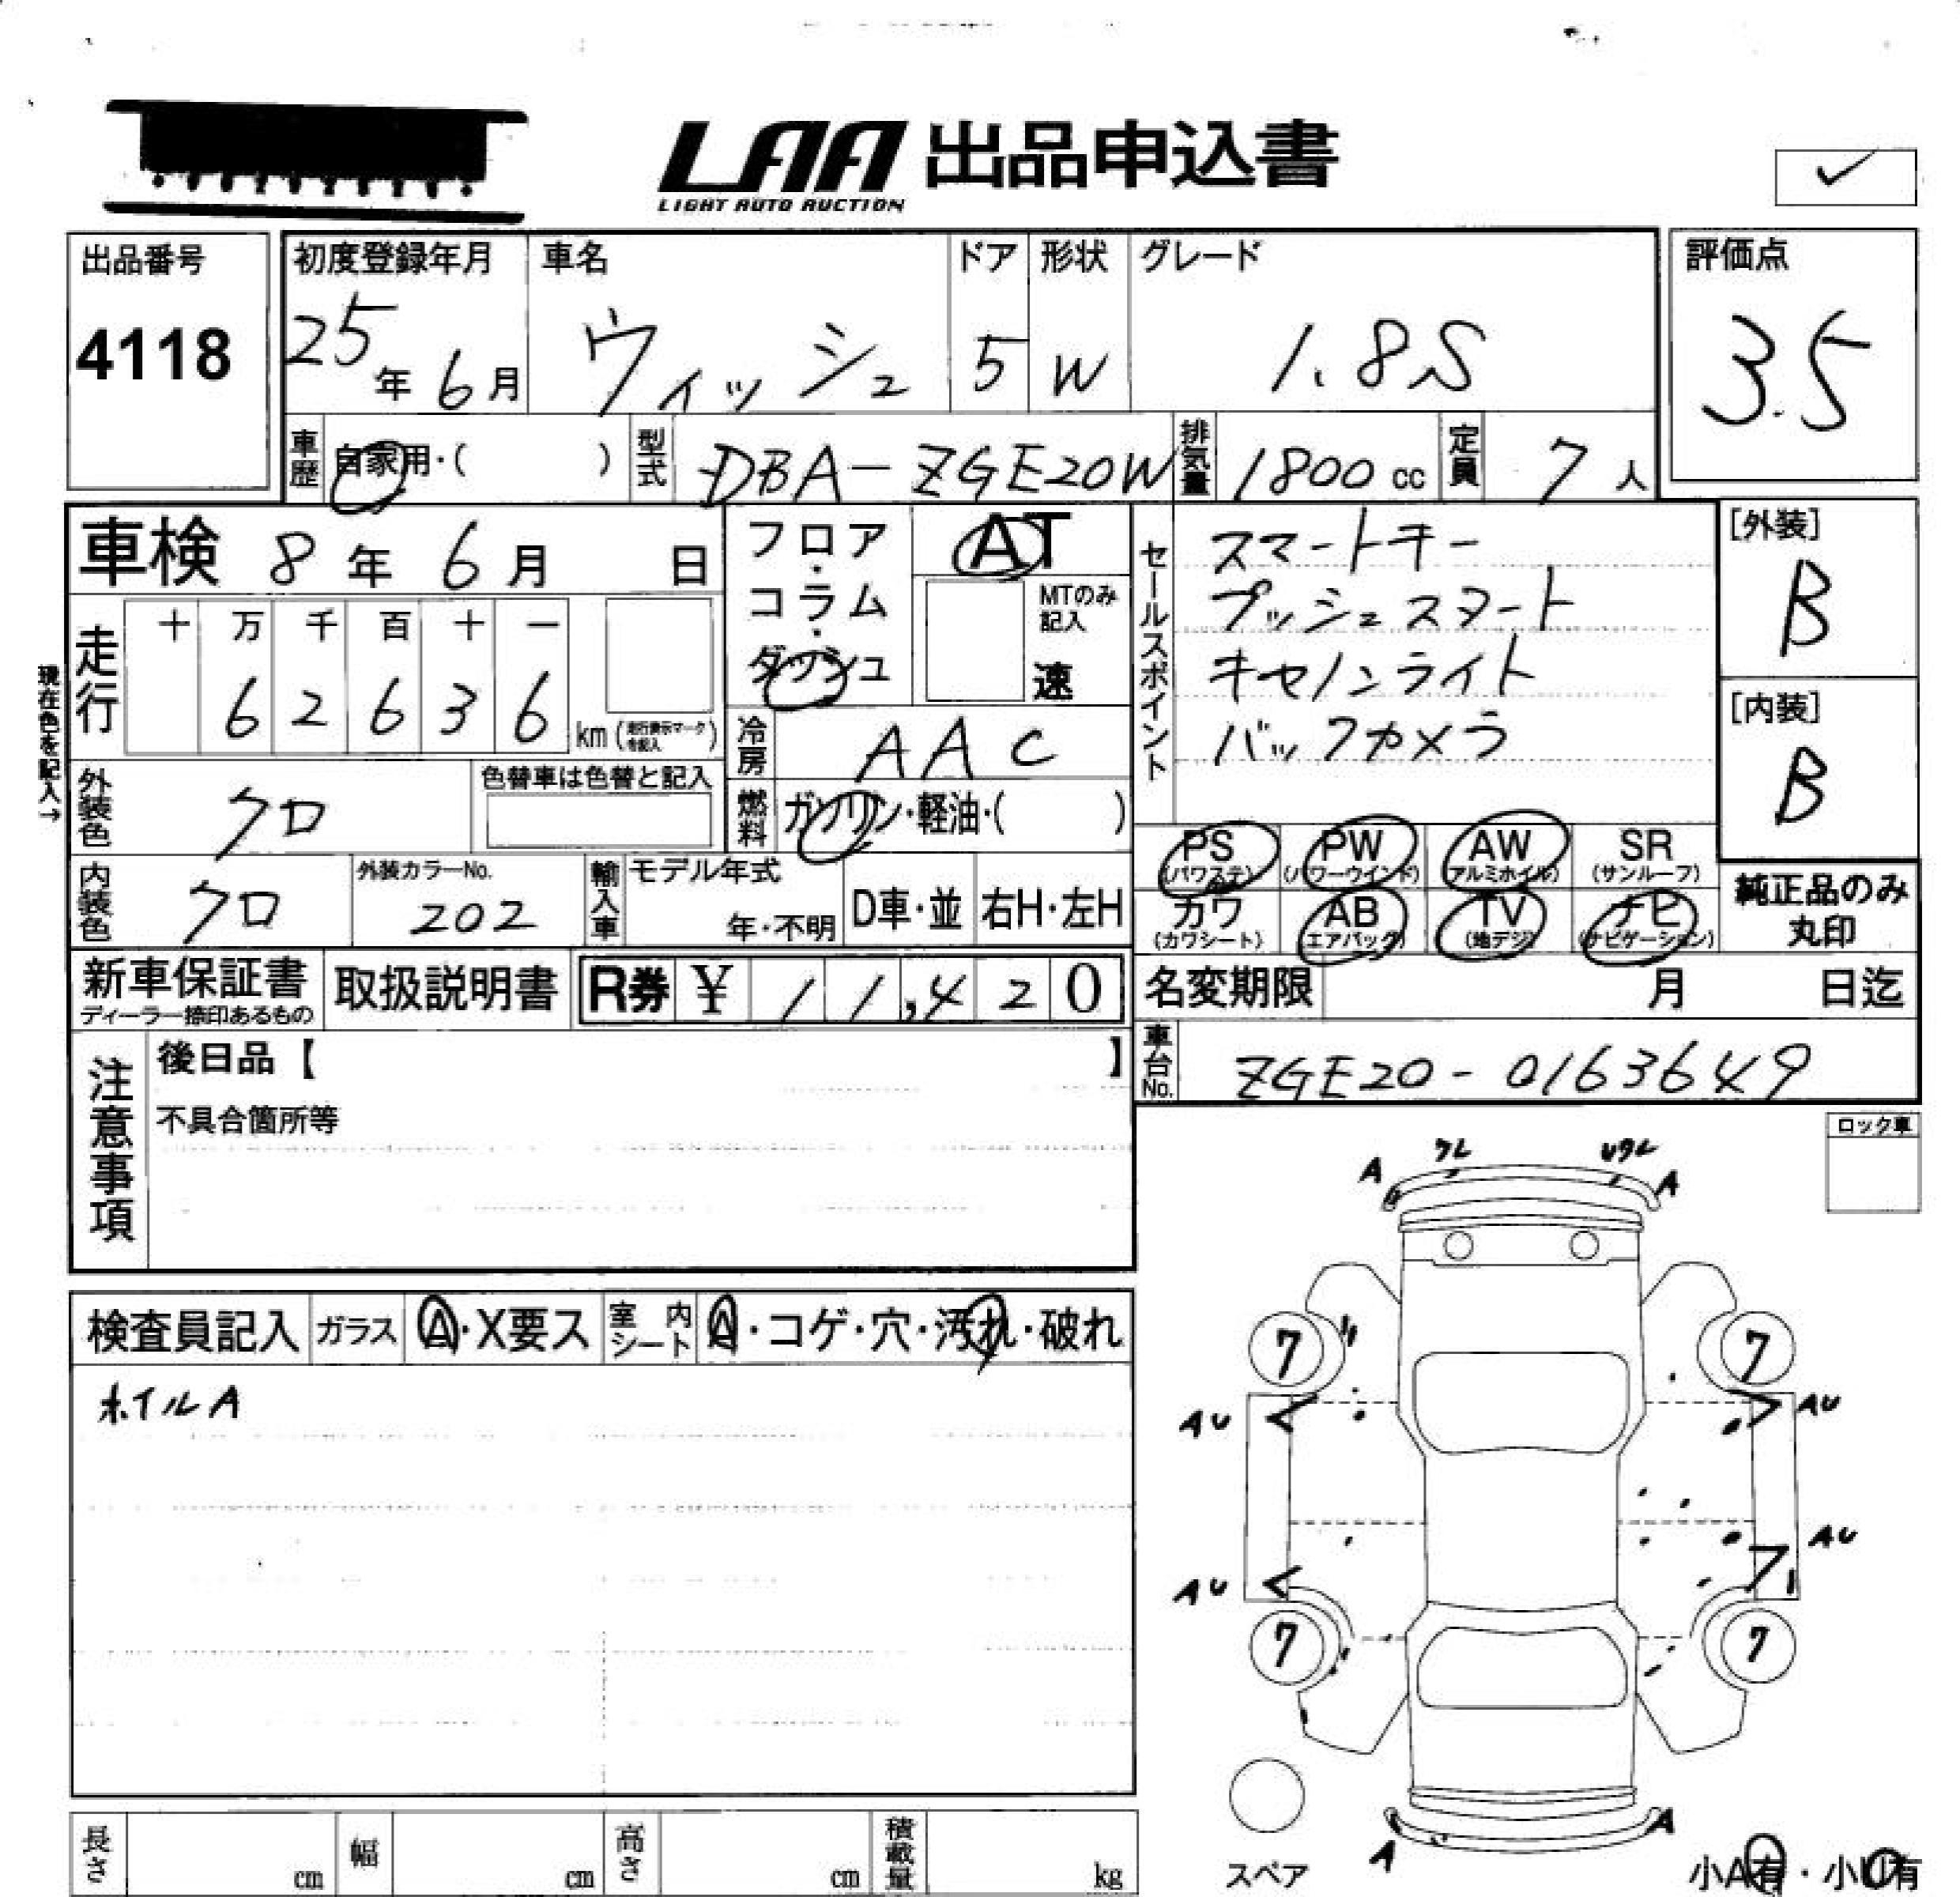 LAA 出品申込書
LIGHT AUTO AUCTION
出品番号
4118
初度登録年月
25年6月
車名
ウィッシュ
ドア
5
形状
W
グレード
1.8S
評価点
3.5
車歴
自家用・( )
型式
DBA-ZGE20W
排気量
1800cc
定員
7人
車検 8年 6月 日
フロア・コラム・ダッシュ
AT
MTのみ記入
速
セールスポイント
スマートキー
プッシュスタート
キセノンライト
バックカメラ
[外装]
B
[内装]
B
現在色を記入→
走行
十 万 千 百 十 一
6 2 6 3 6
km(走行表示マークを記入)
冷房
AAC
外装色
クロ
色替車は色替と記入
燃料
ガソリン・軽油・( )
PS (パワステ)
PW (パワーウインド)
AW (アルミホイル)
SR (サンルーフ)
カワ (カワシート)
AB (エアバッグ)
TV (地デジ)
ナビ (ナビゲーション)
純正品のみ丸印
内装色
クロ
外装カラーNo.
202
輸入車
モデル年式
年・不明
D車・並
右H・左H
新車保証書
ディーラー捺印あるもの
取扱説明書
R券 ¥ 11,420
名変期限 月 日迄
車台No.
ZGE20-0163649
注意事項
後日品【 】
不具合箇所等
ロック車
検査員記入
ガラス
A・X要ス
室内シート
A・コゲ・穴・汚れ・破れ
ホイルA
A
A
7
7
AU
AU
AU
AU
7
7
A
A
スペア
小A有・小U有
長さ cm
幅 cm
高さ cm
積載量 kg